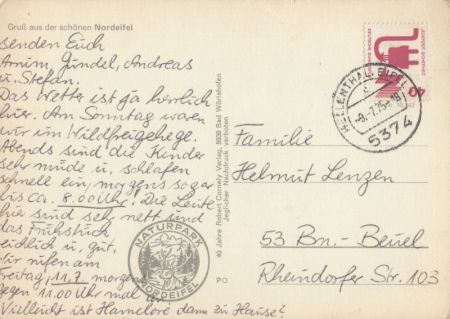 Gruß aus der schönen Nordeifel
senden Euch
Armin, Gundel, Andreas
u. Stefan.
Das Wetter ist ja herrlich
hier. Am Sonntag waren
wir im Wildfreigehege.
Abends sind die Kinder
sehr müde u. schlafen
schnell ein, morgens sogar
bis ca. 8.00 Uhr! Die Leute
hier sind sehr nett und
das Frühstück
reichlich u. gut.
Wir rufen am
Freitag, 11.7. morgens
gegen 11.00 Uhr mal
Vielleicht ist Hannelore dann zu Hause?
NATURPARK
NORDEIFEL
40 Jahre Robert Cornely Verlag, 8939 Bad Wörishofen
Jeglicher Nachdruck verboten
PO
HELLENTHAL, EIFEL
-9.7.75-18
5374
40
Familie
Helmut Lenzen
53 Bn.-Beuel
Rheindorfer Str. 103